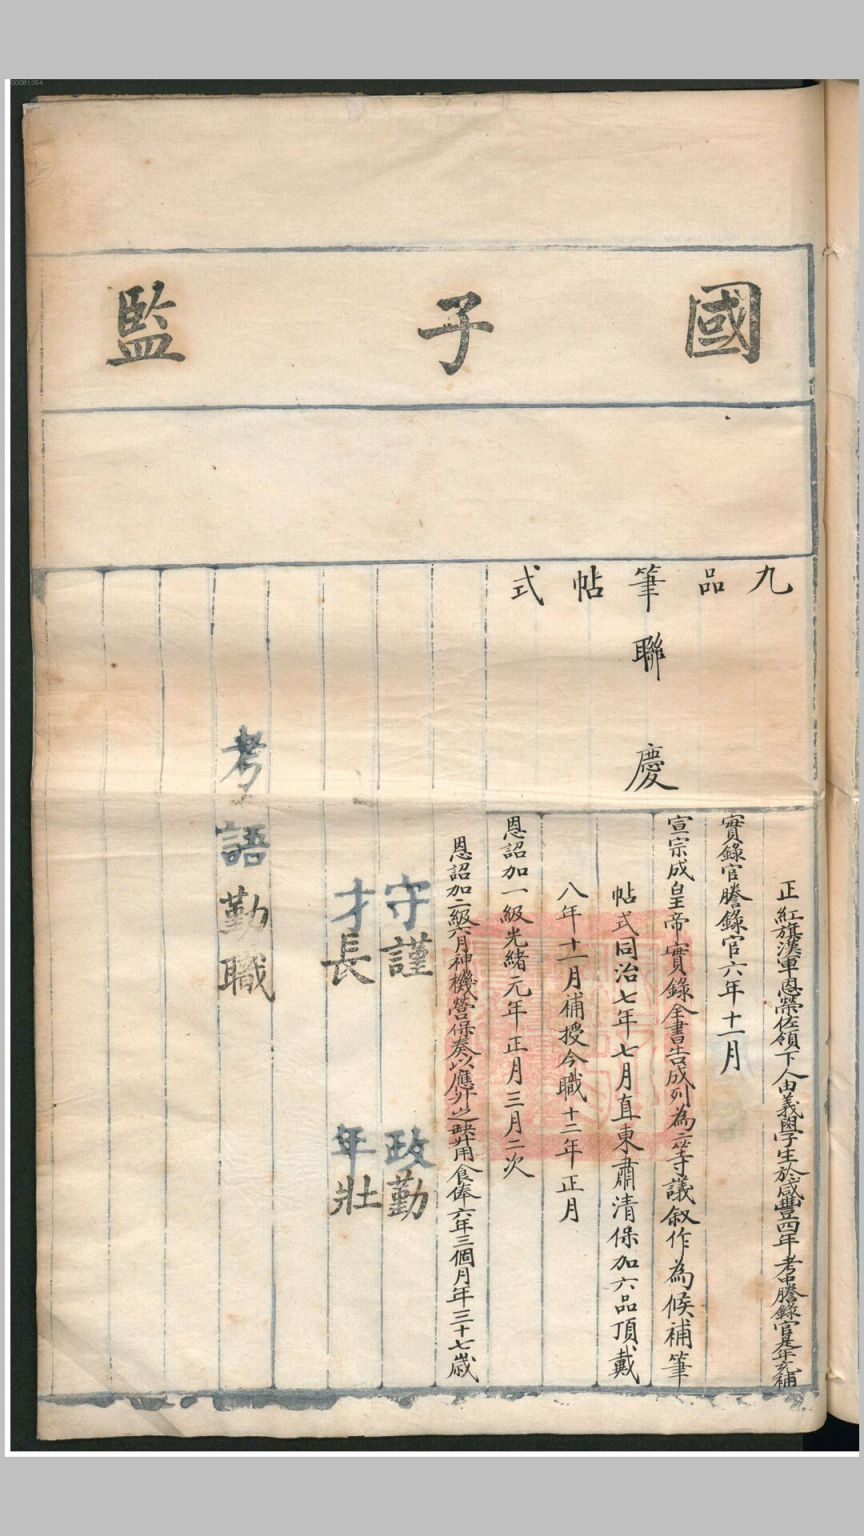 國子監
九品筆帖式
聯慶
正紅旗漢軍恩榮佐領下人由義學生於咸豐四年考中謄錄官是年充補
實錄官謄錄官六年十一月
宣宗成皇帝實錄全書告成列為二等議敘作為候補筆
帖式同治七年七月直東肅清保加六品頂戴
八年十一月補授今職十二年正月
恩詔加一級光緒元年正月三月二次
恩詔加二級六月神機營保奏以應升之缺升用食俸六年三個月年三十七歲
守謹 政勤
才長 年壯
考語勤職